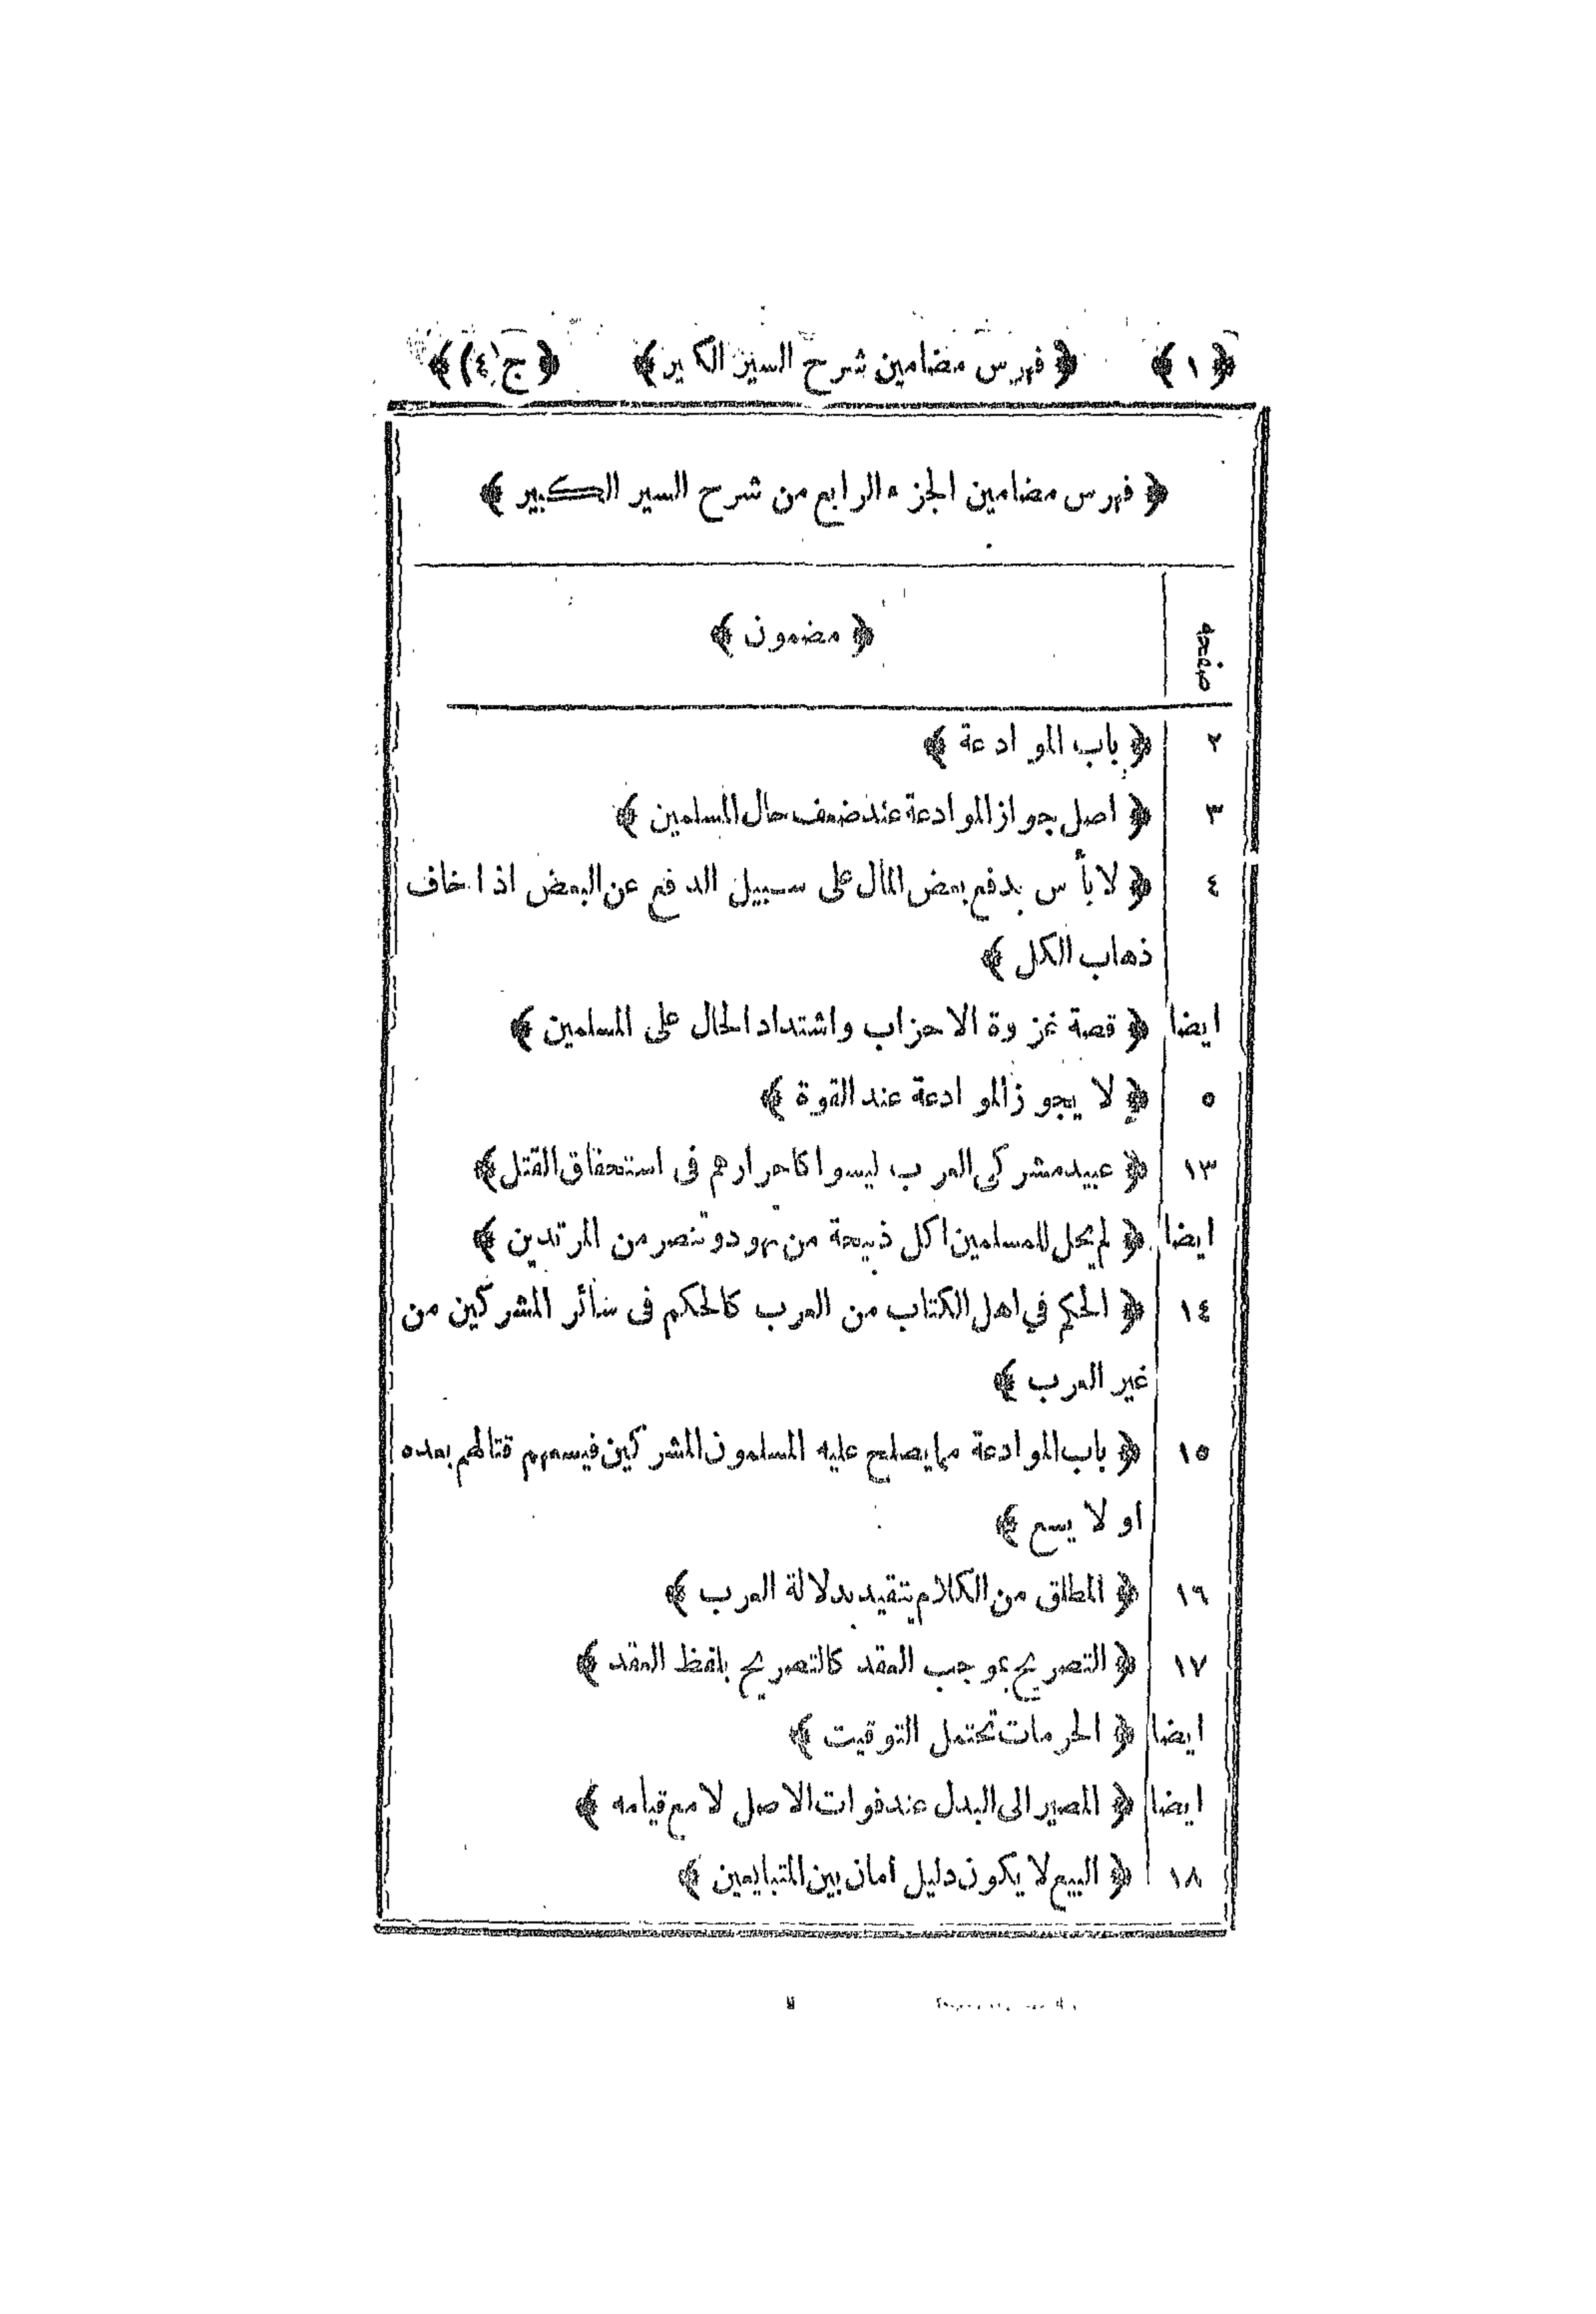 ﴿ ١ ﴾ ﴿ فهرس مضامين شرح السير الكبير ﴾ ﴿ ج (٤) ﴾
﴿ فهرس مضامين الجزء الرابع من شرح السير الكبير ﴾
صفحه ﴿ مضمون ﴾
٢ ﴿ باب الموادعة ﴾
٣ ﴿ اصل جواز الموادعة عند ضعف حال المسلمين ﴾
٤ ﴿ لا بأس بدفع بعض المال على سبيل الدفع عن البعض اذا خاف
ذهاب الكل ﴾
ايضا ﴿ قصة غزوة الاحزاب واشتداد الحال على المسلمين ﴾
٥ ﴿ لا يجوز الموادعة عند القوة ﴾
١٣ ﴿ عبيد مشركى العرب ليسوا كاحرارهم فى استحقاق القتل ﴾
ايضا ﴿ لم يحل للمسلمين اكل ذبيحة من تهود وتنصر من المرتدين ﴾
١٤ ﴿ الحكم في اهل الكتاب من العرب كالحكم فى سائر المشركين من
غير العرب ﴾
١٥ ﴿ باب الموادعة مما يصلح عليه المسلمون المشركين فيسعهم قتالهم بعده
او لا يسع ﴾
١٦ ﴿ المطلق من الكلام يتقيد بدلالة العرب ﴾
١٧ ﴿ التصريح بموجب العقد كالتصريح بلفظ العقد ﴾
ايضا ﴿ الحرمات تحتمل التوقيت ﴾
ايضا ﴿ المصير الى البدل عند فوات الاصل لا مع قيامه ﴾
١٨ ﴿ البيع لا يكون دليل امان بين المتبايعين ﴾